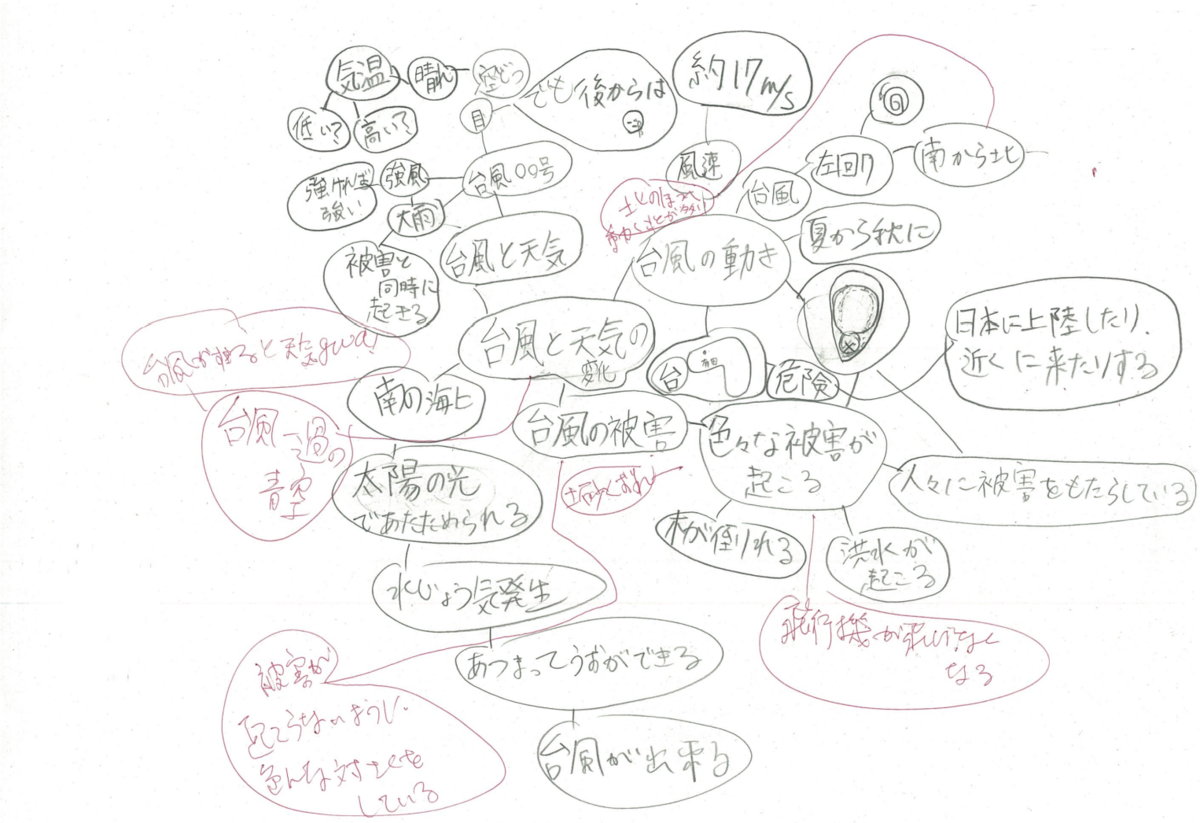 気温
晴れ
空どう
でも後からは
約17m/s
低い?
高い?
目
左回り
南から北
強ければ
強い
強風
台風〇〇号
風速
台風
大雨
台風と天気
台風の動き
夏から秋に
被害と
同時に
起きる
台風と天気の
変化
台
危険
日本に上陸したり、
近くに来たりする
南の海上
台風の被害
色々な被害が
起こる
台風一過の
青空
太陽の光
であたためられる
人々に被害をもたらしている
木が倒れる
洪水が
起こる
水じょう気発生
飛行機が飛べなく
なる
あつまってうずができる
被害が
起こらないように
色んな対さくを
している
台風が出来る